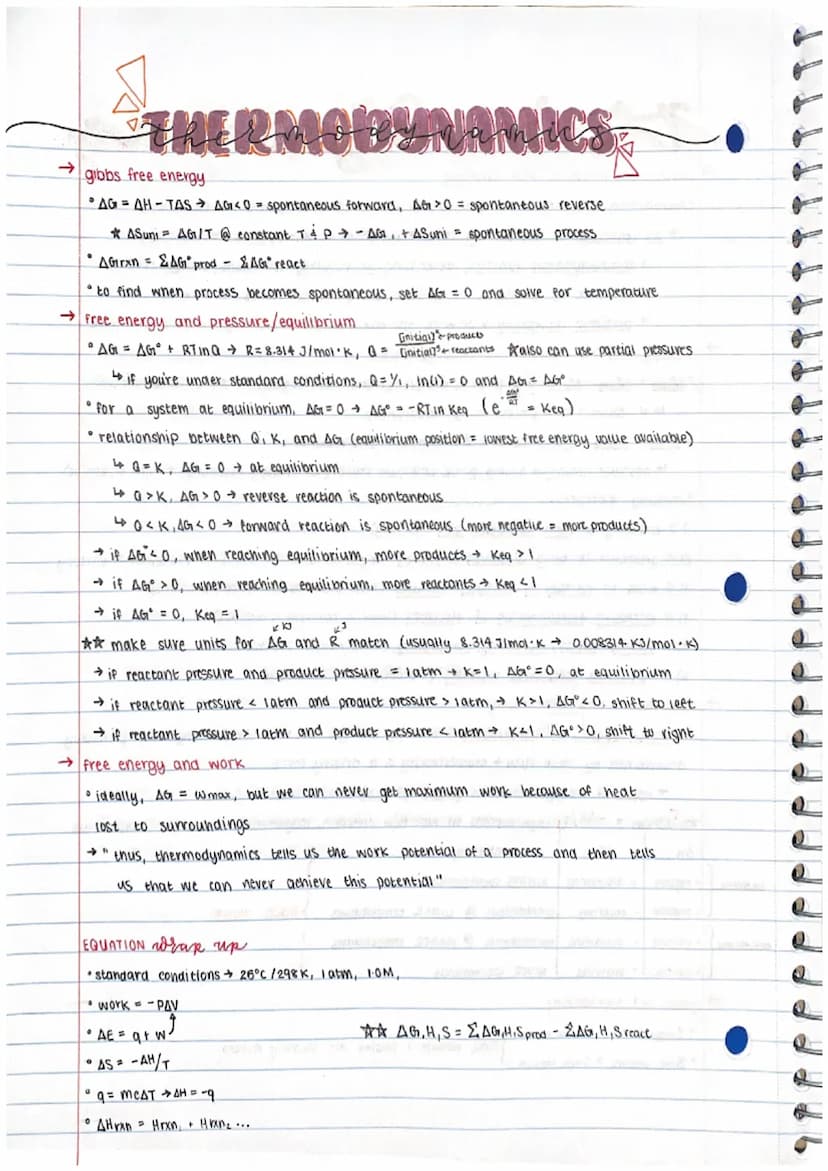 THERMODYNAMICS
thermodynamics
→ gibbs free energy
• ΔG = ΔH - TΔS → ΔG < 0 = spontaneous forward, ΔG > 0 = spontaneous reverse
★ ΔSuni = ΔG/T @ constant T & P → -ΔG, +ΔSuni = spontaneous process
• ΔGrxn = ΣΔG° prod - ΣΔG° react
• to find when process becomes spontaneous, set ΔG = 0 and solve for temperature
→ free energy and pressure/equilibrium
• ΔG = ΔG° + RTlnQ → R = 8.314 J/mol·K, Q = [initial]ˣ ← products / [initial]ˣ ← reactants ★also can use partial pressures
↳ if you're under standard conditions, Q = 1/1, ln(1) = 0 and ΔG = ΔG°
• for a system at equilibrium, ΔG = 0 → ΔG° = -RT ln Keq (e^-ΔG°/RT = Keq)
• relationship between Q, K, and ΔG (equilibrium position = lowest free energy value available)
↳ Q = K, ΔG = 0 → at equilibrium
↳ Q > K, ΔG > 0 → reverse reaction is spontaneous
↳ Q < K, ΔG < 0 → forward reaction is spontaneous (more negative = more products)
→ if ΔG° < 0, when reaching equilibrium, more products → Keq > 1
→ if ΔG° > 0, when reaching equilibrium, more reactants → Keq < 1
→ if ΔG° = 0, Keq = 1
↙ KJ ↙ J
★★ make sure units for ΔG and R match (usually 8.314 J/mol·K → 0.008314 KJ/mol·K)
→ if reactant pressure and product pressure = 1atm → K=1, ΔG°=0, at equilibrium
→ if reactant pressure < 1atm and product pressure > 1atm, → K>1, ΔG°<0, shift to left
→ if reactant pressure > 1atm and product pressure < 1atm → K<1, ΔG°>0, shift to right
→ free energy and work
• ideally, ΔG = wmax, but we can never get maximum work because of heat
lost to surroundings
→ "thus, thermodynamics tells us the work potential of a process and then tells
us that we can never achieve this potential"
EQUATION wrap up
• standard conditions → 25°C / 298K, 1 atm, 1.0M,
• work = -PΔV
• ΔE = q + w
★★ ΔG,H,S = ΣΔG,H,S prod - ΣΔG,H,S react
• ΔS = -ΔH/T
• q = mcΔT → ΔH = -q
• ΔHrxn = Hrxn₁ + Hrxn₂ ...